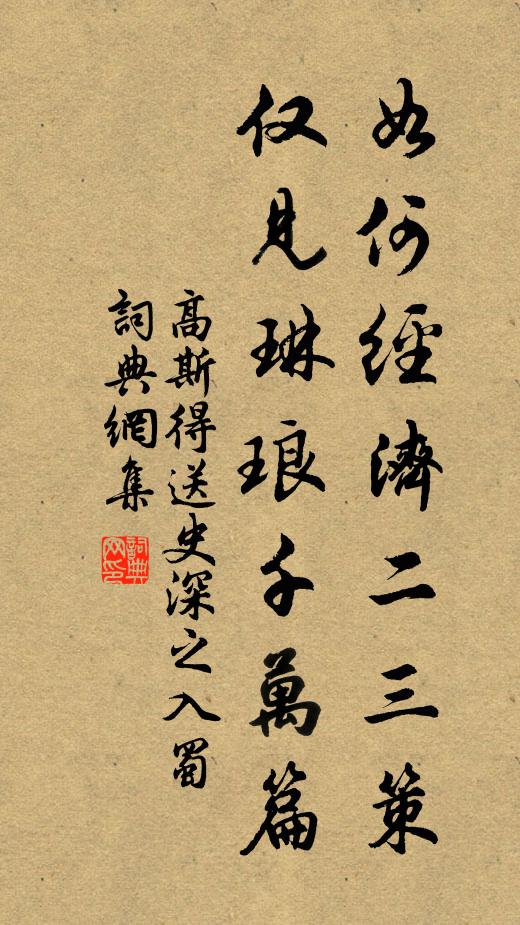 如何經濟二三策
仅見琳琅千萬篇
高斯得送史深之入蜀
詞典網集
詞典网印